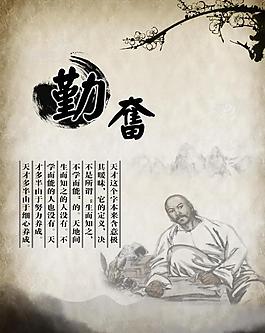 勤奋
天才这个字本来含意极
其暧昧，它的定义，决
不是所谓“生而知之，
不学而能”的。天地间
生而知之的人没有，不
学而能的人也没有。天
才多半由于努力养成，
天才多半由于细心养成